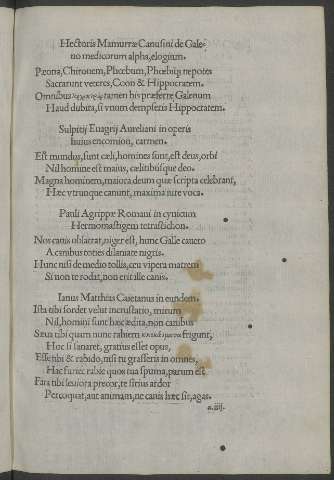 Hectoris Mamurræ Canusini de Gale-
no medicorum alpha, elogium.
Pæona, Chironem, Phœbum, Phœbiiq; nepotes
Sacrarunt veteres, Coon & Hippocratem.
Omnibus tamen his præferre Galenum
Haud dubita, si vnum dempseris Hippocratem.
Sulpitij Euagrij Aureliani in operis
huius encomion, carmen.
Est mundus, sunt cæli, homines sunt, est deus, orbi
Nil homine est maius, cælitibúsque deo.
Magna hominem, maiora deum quæ scripta celebrant,
Hæc vtrunque canunt, maxima iure voca.
Pauli Agrippæ Romani in cynicum
Hermomastigem tetrastichon.
Nos canis oblatrat, niger est, hunc Galle caueto
A canibus toties dilaniate nigris.
Hunc nisi de medio tollis, ceu vipera matrem
Si non te rodat, non erit ille canis.
Ianus Matthæus Caietanus in eundem.
Ista tibi sordet velut incrustatio, mirum
Nil, homini sunt hæc ædita, non canibus
Sæus tibi quam nunc rabiem frigunt,
Hoc si sanaret, gratius esset opus,
Esse tibi & rabido, nisi tu grasseris in omnes,
Hac furiec rabie quos tua spuma, parum est
Fars tibi leuiora precor, te sirius ardor
Percoquat, aut animam, ne canis hæc sis, agas.
a.iiij.